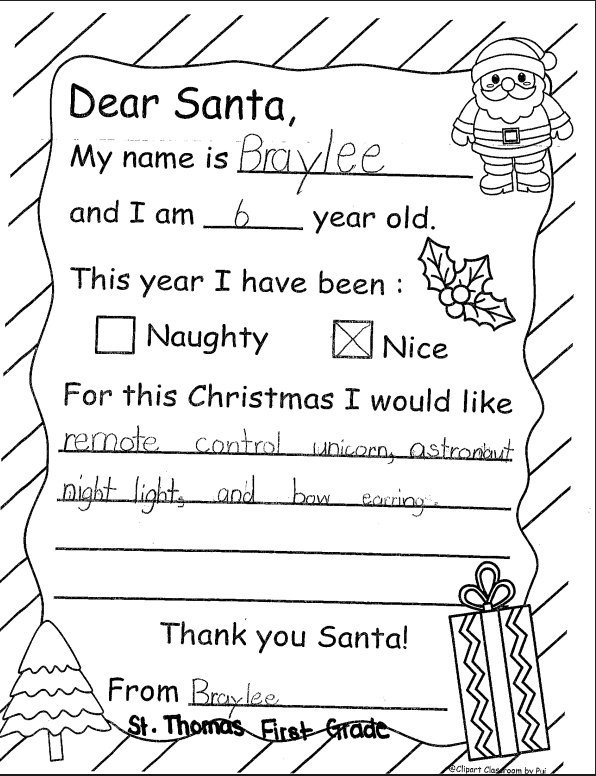 Dear Santa,
My name is Braylee
and I am 6 year old.
This year I have been :
Naughty Nice
For this Christmas I would like
remote control unicorn, astronaut
night light, and bow earrings.
Thank you Santa!
From Braylee
St. Thomas First Grade
©Clipart Classroom by Pui